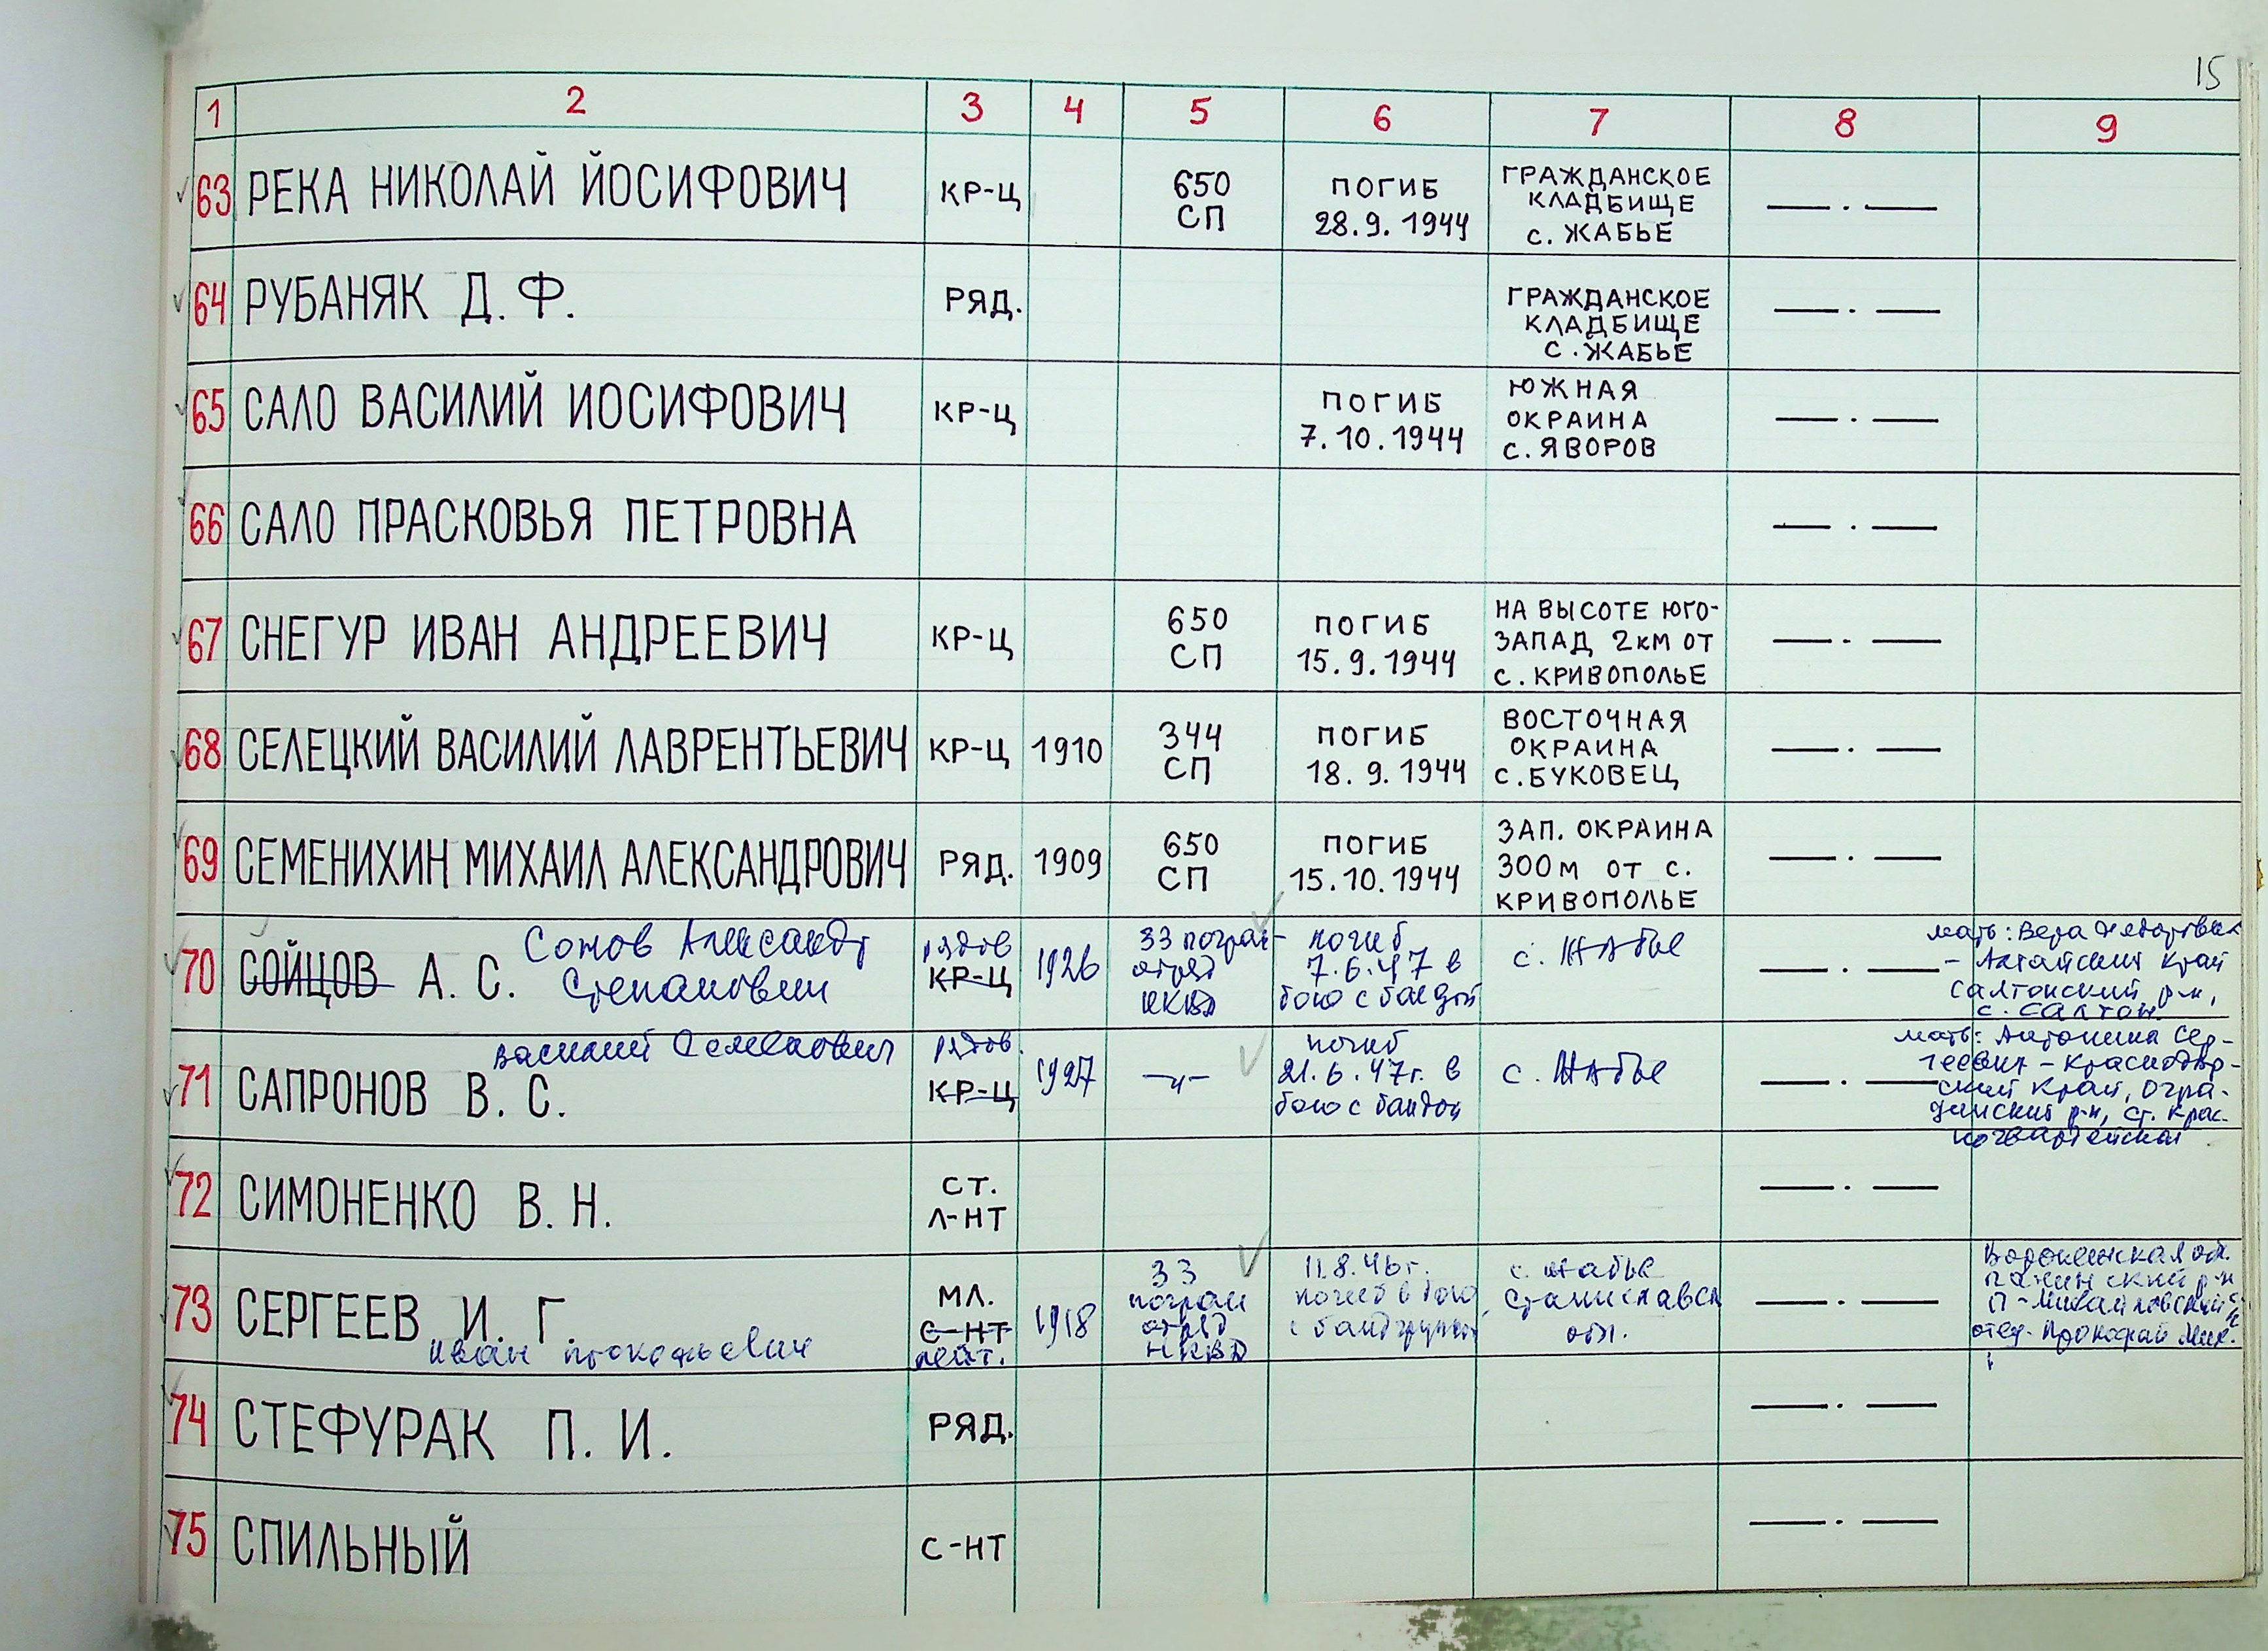 15
1 2 3 4 5 6 7 8 9
63 РЕКА НИКОЛАЙ ЙОСИФОВИЧ КР-Ц 650 СП ПОГИБ 28.9.1944 ГРАЖДАНСКОЕ КЛАДБИЩЕ с. ЖАБЬЕ — . —
64 РУБАНЯК Д. Ф. РЯД. ГРАЖДАНСКОЕ КЛАДБИЩЕ С. ЖАБЬЕ — . —
65 САЛО ВАСИЛИЙ ИОСИФОВИЧ КР-Ц ПОГИБ 7.10.1944 ЮЖНАЯ ОКРАИНА с. ЯВОРОВ — . —
66 САЛО ПРАСКОВЬЯ ПЕТРОВНА — . —
67 СНЕГУР ИВАН АНДРЕЕВИЧ КР-Ц 650 СП ПОГИБ 15.9.1944 НА ВЫСОТЕ ЮГО-ЗАПАД 2КМ ОТ с. КРИВОПОЛЬЕ — . —
68 СЕЛЕЦКИЙ ВАСИЛИЙ ЛАВРЕНТЬЕВИЧ КР-Ц 1910 344 СП ПОГИБ 18.9.1944 ВОСТОЧНАЯ ОКРАИНА с. БУКОВЕЦ — . —
69 СЕМЕНИХИН МИХАИЛ АЛЕКСАНДРОВИЧ РЯД. 1909 650 СП ПОГИБ 15.10.1944 ЗАП. ОКРАИНА 300М ОТ с. КРИВОПОЛЬЕ — . —
70 СОЙЦОВ А. С. Сомов Александр Степанович рядов КР-Ц 1926 33 погран-отряд НКВД погиб 7.6.47 в бою с бандой с. Жабье — . — мать: Вера Федоровна - Алтайский край Салтонский р-н, с. Салтон
71 САПРОНОВ В. С. Василий Семенович рядов. КР-Ц 1927 —"— погиб 21.6.47г. в бою с бандой с. Жабье — . — мать: Антонина Сергеевна - Краснодарский край, Отрадинский р-н, ст. Красногвардейская
72 СИМОНЕНКО В. Н. СТ. Л-НТ — . —
73 СЕРГЕЕВ И. Г. Иван Прокофьевич МЛ. С-НТ лейт. 1918 33 погран отряд НКВД 11.8.46г. погиб в бою с бандгруппой с. Жабье Станиславск обл. — . — Воронежская обл. Панинский р-н отец- Прокофий Мих.
74 СТЕФУРАК П. И. РЯД. — . —
75 СПИЛЬНЫЙ С-НТ — . —